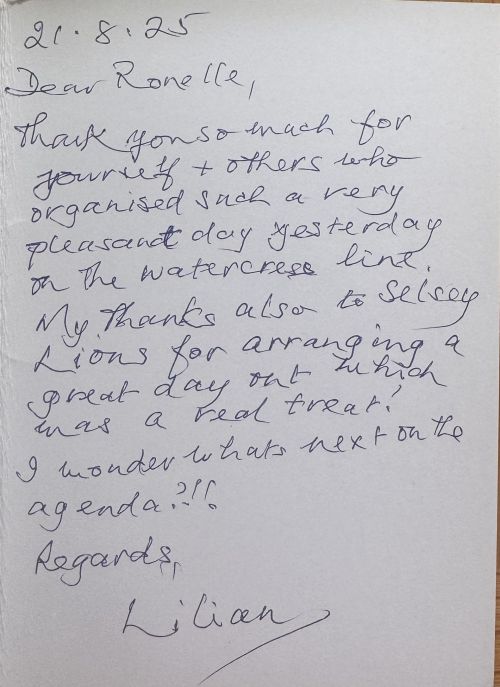 21.8.25
Dear Ronelle,
Thank you so much for
yourself + others who
organised such a very
pleasant day yesterday
on the watercress line.
My thanks also to Selsey
Lions for arranging a
great day out which
was a real treat!
I wonder whats next on the
agenda?!!
Regards,
Lilian